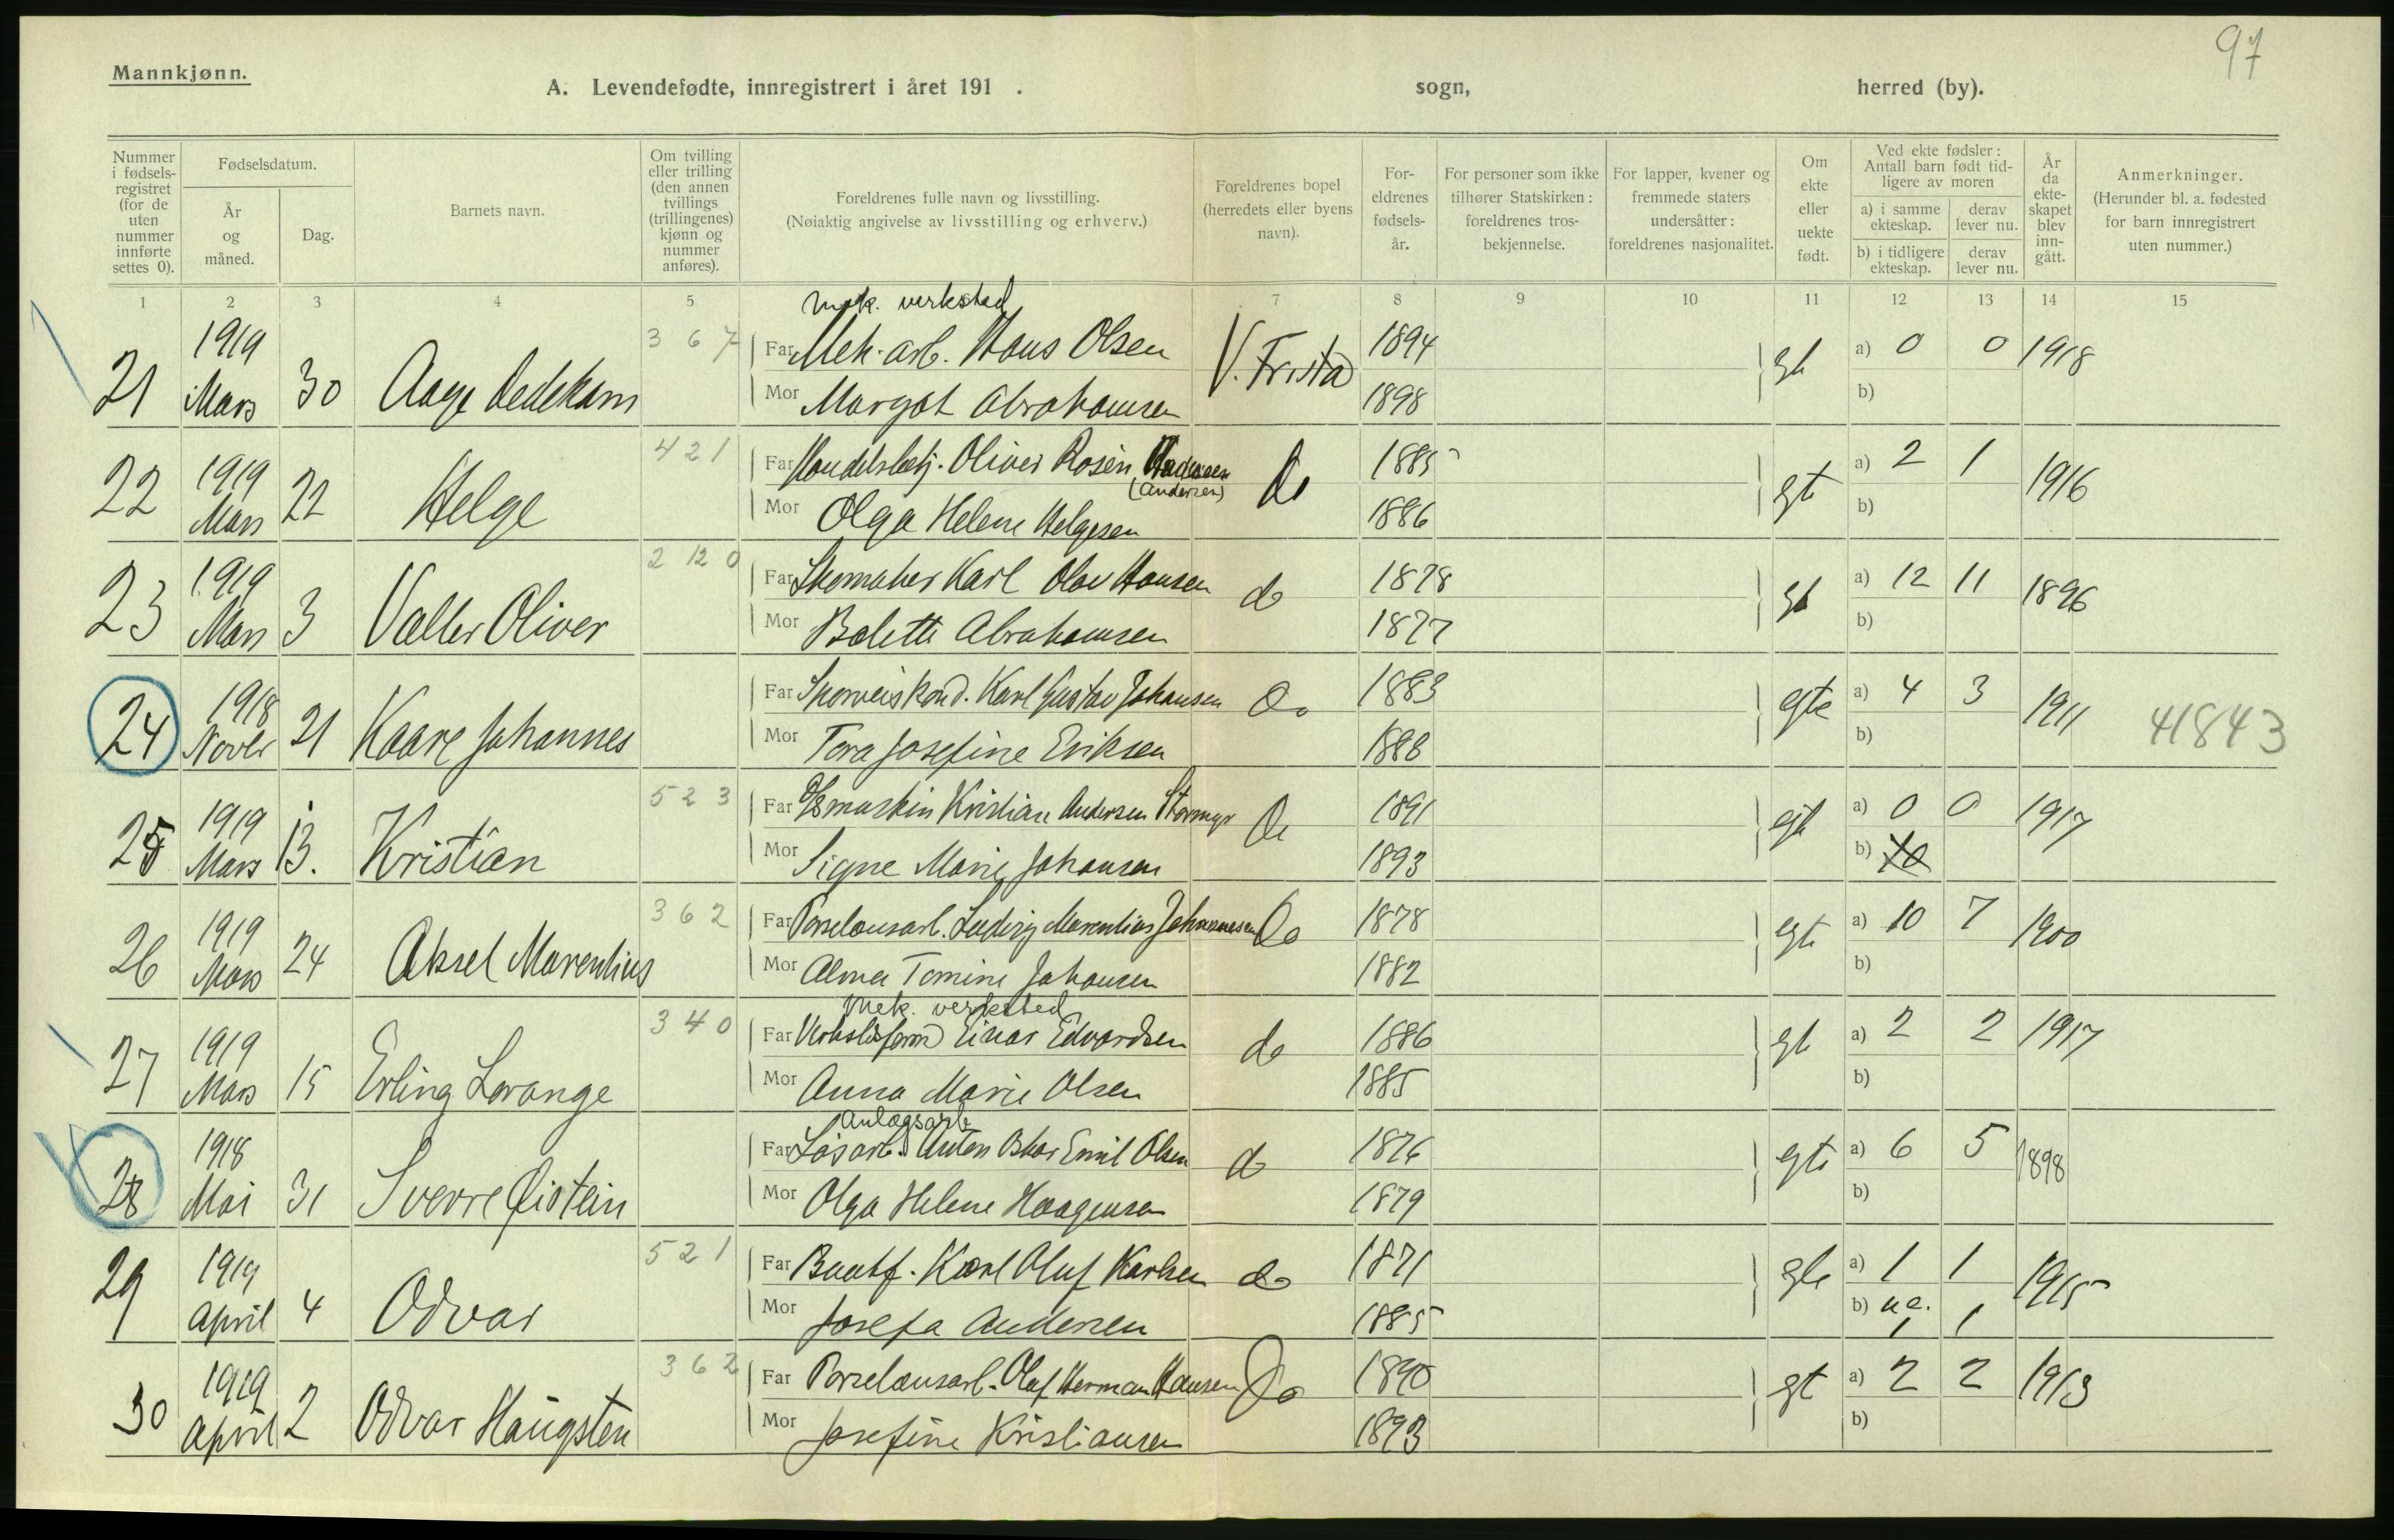 97
Mannkjønn.
A. Levendefødte, innregistrert i året 191 . sogn, herred (by).
Nummer i fødsels-registret (for de uten nummer innførte settes 0).
Fødselsdatum.
År og måned.
Dag.
Barnets navn.
Om tvilling eller trilling (den annen tvillings (trillingenes) kjønn og nummer anføres).
Foreldrenes fulle navn og livsstilling.
(Nøiaktig angivelse av livsstilling og erhverv.)
Foreldrenes bopel (herredets eller byens navn).
For-eldrenes fødsels-år.
For personer som ikke tilhører Statskirken: foreldrenes tros-bekjennelse.
For lapper, kvener og fremmede staters undersåtter: foreldrenes nasjonalitet.
Om ekte eller uekte født.
Ved ekte fødsler: Antall barn født tid-ligere av moren
a) i samme ekteskap. derav lever nu.
b) i tidligere ekteskap. derav lever nu.
År da ekte-skapet blev inn-gått.
Anmerkninger.
(Herunder bl. a. fødested for barn innregistrert uten nummer.)
1 2 3 4 5 7 8 9 10 11 12 13 14 15
mek. verksted
21 1919 Mars 30 Aage Dedekam 3 6 7 Far Mek. arb. Hans Olsen V. Frstad 1894 gt a) 0 0 1918
Mor Margot Abrahamsen 1898 b)
22 1919 Mars 22 Helge 4 2 1 Far Handelsbetj. Oliver Rosén do 1885 gt a) 2 1 1916
(Andersen)
Mor Olga Helene Helgesen 1886 b)
23 1919 Mars 3 Valler Oliver 2 12 0 Far Skomaker Karl Olav Hansen do 1878 gt a) 12 11 1896
Mor Bolette Abrahamsen 1877 b)
24 1918 Novbr 21 Kaare Johannes Far Sporveiskond. Karl Gustav Johansen Do 1883 gte a) 4 3 1911 41843
Mor Tora Josefine Eriksen 1888 b)
25 1919 Mars 13. Kristian 5 2 3 Far Kristian Andersen Stormyr Do 1891 gt a) 0 0 1917
Mor Signe Marie Johansen 1893 b)
26 1919 Mars 24 Aksel Marentius 3 6 2 Far Porselensarb. Ludvig Marentius Johannesen Do 1878 gt a) 10 7 1900
Mor Alma Tomine Johansen 1882 b)
mek. verksted
27 1919 Mars 15 Erling Lorange 3 4 0 Far Verkstedsform Einar Edvardsen do 1886 gt a) 2 2 1917
Mor Anna Marie Olsen 1885 b)
Anlægsarb
28 1918 Mai 31 Sverre Øistein Far Løsarb. Anton Oskar Emil Olsen do 1876 gte a) 6 5 1898
Mor Olga Helene Haagensen 1879 b)
29 1919 April 4 Odvar 5 2 1 Far Baatf. Karl Oluf Karlsen do 1871 gte a) 1 1 1915
Mor Josefa Andersen 1885 b) ue. 1 1
30 1919 April 2 Odvar Haugsten 3 6 2 Far Porzelænsarb. Olaf Herman Hansen Do 1890 gt a) 2 2 1913
Mor Josefine Kristiansen 1893 b)